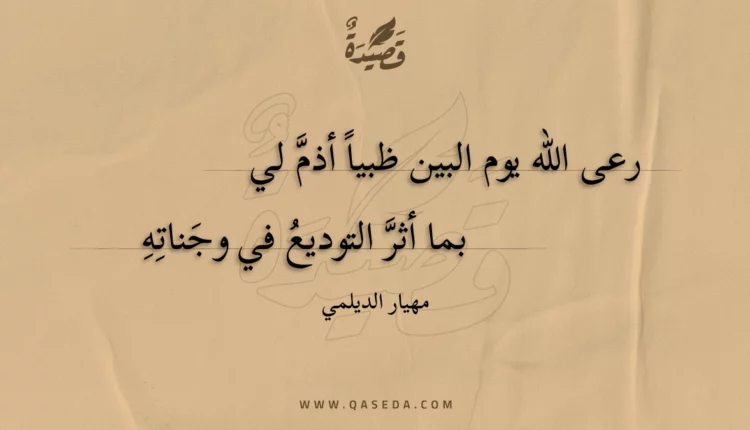 قَصِيدَةٌ
رعى الله يوم البين ظبياً أذمَّ لي
بما أثرَّ التوديعُ في وجَناتِهِ
مهيار الديلمي
WWW.QASEDA.COM